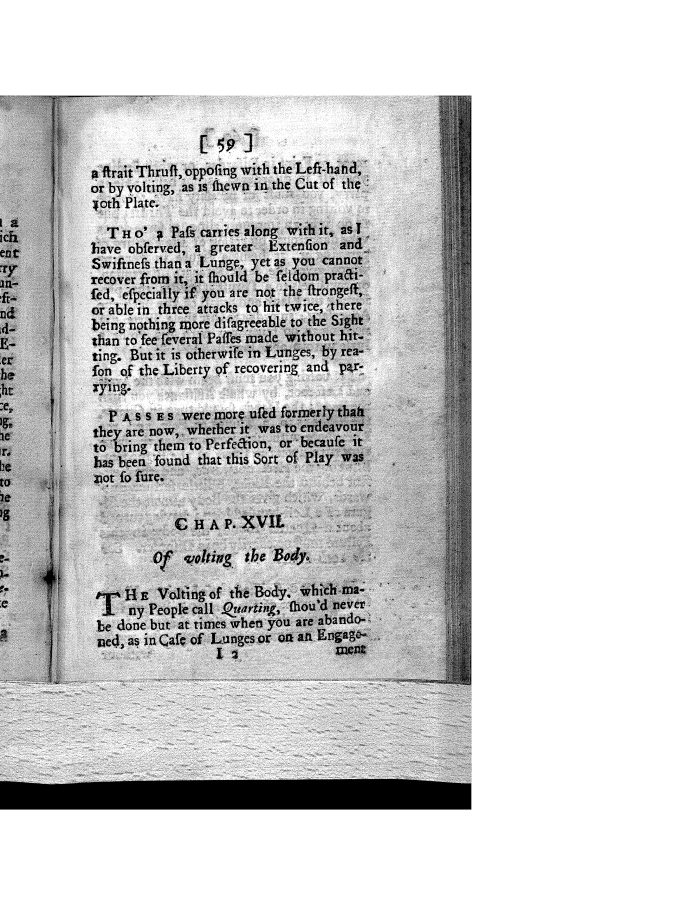 [ 59 ]
a ſtrait Thruſt, oppoſing with the Left-hand,
or by volting, as is ſhewn in the Cut of the
10th Plate.
THO' a Paſs carries along with it, as I
have obſerved, a greater Extenſion and
Swiftneſs than a Lunge, yet as you cannot
recover from it, it ſhould be ſeldom practi-
ſed, eſpecially if you are not the ſtrongeſt,
or able in three attacks to hit twice, there
being nothing more diſagreeable to the Sight
than to ſee ſeveral Paſſes made without hit-
ting. But it is otherwiſe in Lunges, by rea-
ſon of the Liberty of recovering and par-
rying.
PASSES were more uſed formerly than
they are now, whether it was to endeavour
to bring them to Perfection, or becauſe it
has been found that this Sort of Play was
not ſo ſure.
CHAP. XVII.
Of volting the Body.
THE Volting of the Body, which ma-
ny People call Quarting, ſhou'd never
be done but at times when you are abando-
ned, as in Caſe of Lunges or on an Engage-
I 2 ment